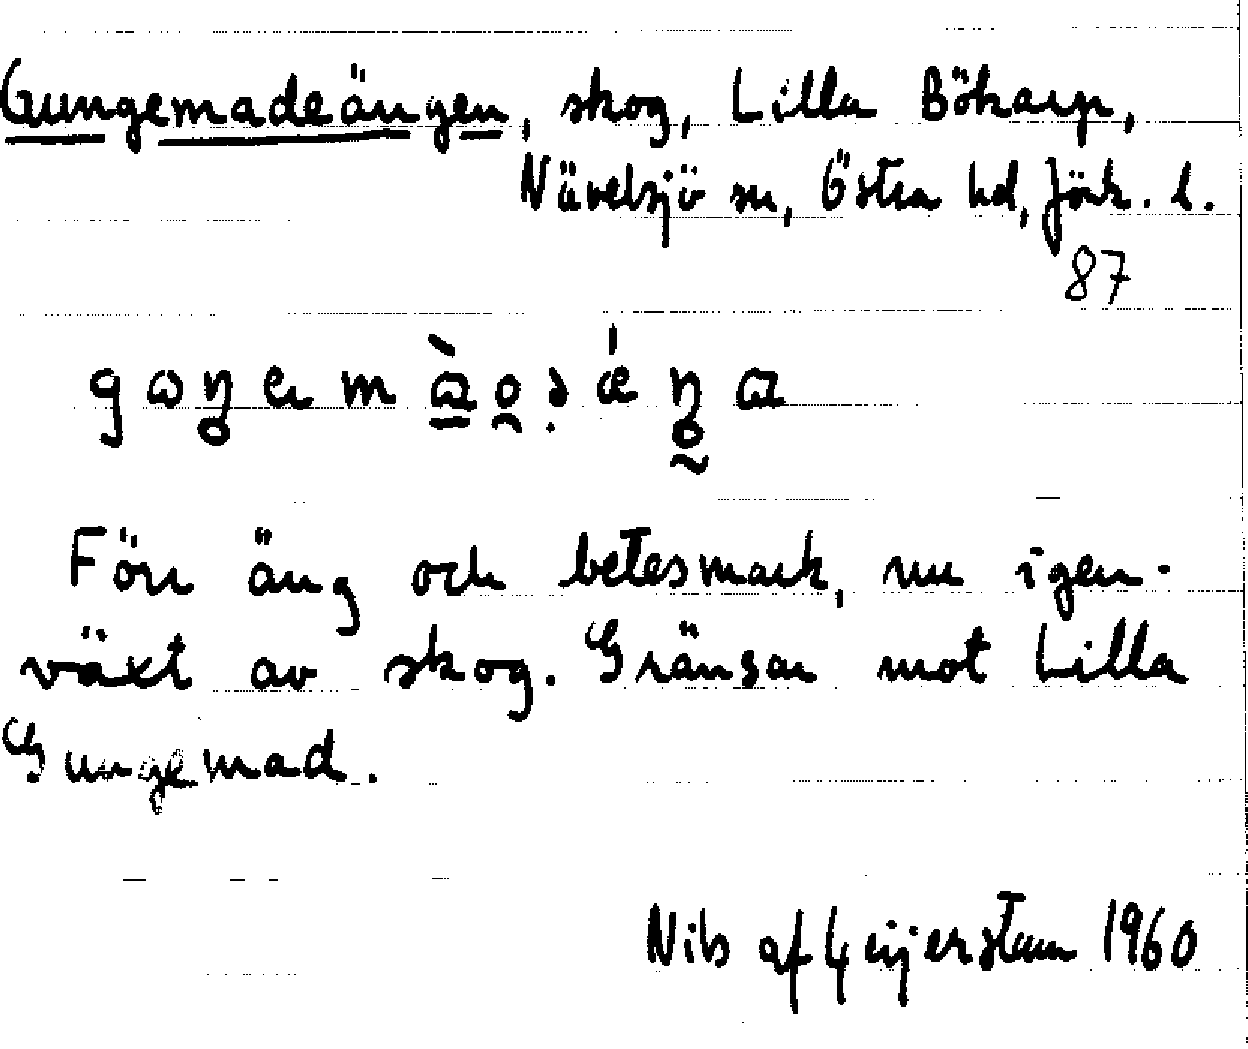 Gungemadeängen, skog, Lilla Bökarp,
Nävelsjö sn, Östra hd, Jönk. l.
87
Förr äng och betesmark, nu igen-
växt av skog. Gränsar mot Lilla
Gungemad.
Nils af Geijerstam 1960